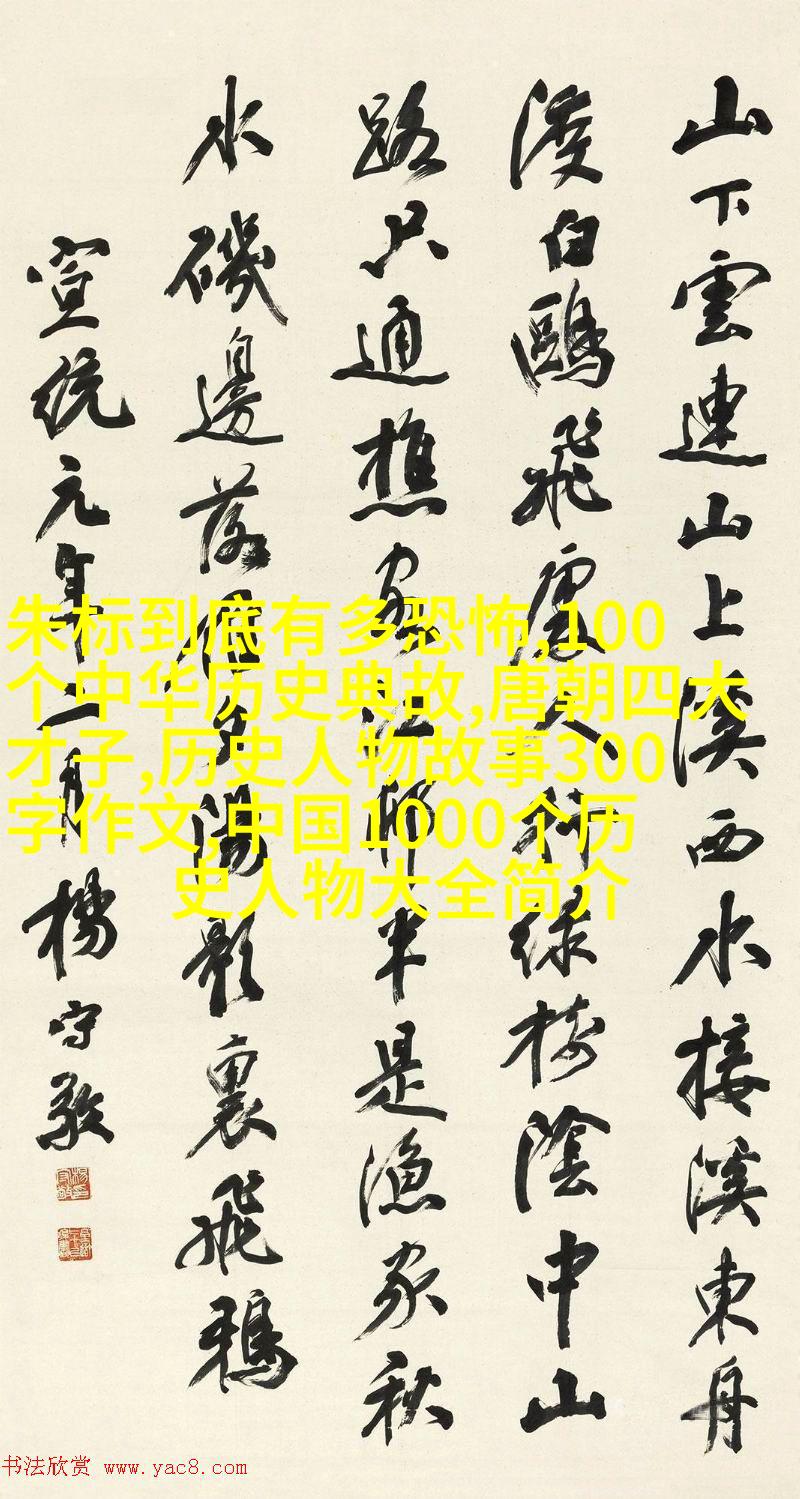 山下雲連山上溪西水接溪東舟
渡白鷗飛處人行綠樹陰中山
路只通樵客江邨半是漁家秋
水磯邊落雁夕陽影裏飛鴉
宣統元年二月楊守敬
朱标到底有多恐怖,100
个中华历史典故,唐朝四大
才子,历史人物故事300
字作文,中国1000个历
史人物大全简介
书法欣赏 www.yac8.com